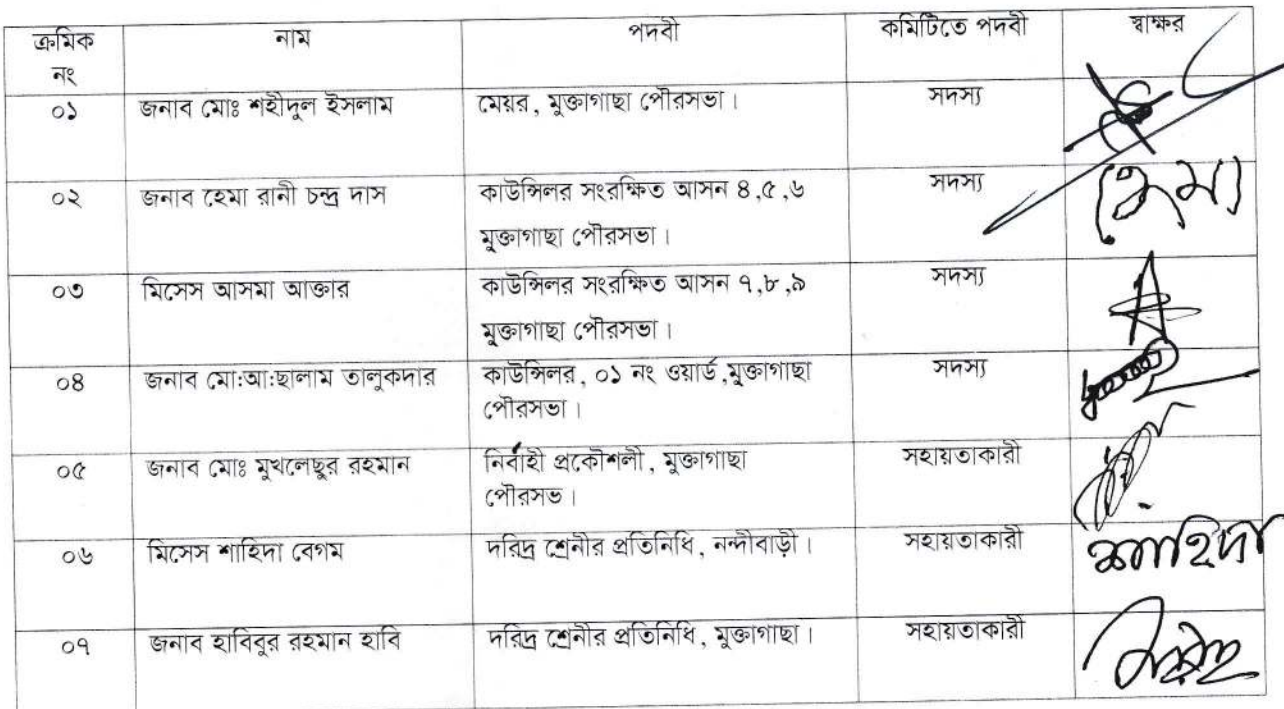 ক্রমিক নং নাম পদবী কমিটিতে পদবী স্বাক্ষর
০১ জনাব মোঃ শহীদুল ইসলাম মেয়র, মুক্তাগাছা পৌরসভা। সদস্য
০২ জনাব হেমা রানী চন্দ্র দাস কাউন্সিলর সংরক্ষিত আসন ৪,৫,৬ সদস্য হেমা
মুক্তাগাছা পৌরসভা।
০৩ মিসেস আসমা আক্তার কাউন্সিলর সংরক্ষিত আসন ৭,৮,৯ সদস্য
মুক্তাগাছা পৌরসভা।
০৪ জনাব মো:আ:ছালাম তালুকদার কাউন্সিলর, ০১ নং ওয়ার্ড,মুক্তাগাছা সদস্য
পৌরসভা।
০৫ জনাব মোঃ মুখলেছুর রহমান নির্বাহী প্রকৌশলী, মুক্তাগাছা সহায়তাকারী
পৌরসভ।
০৬ মিসেস শাহিদা বেগম দরিদ্র শ্রেনীর প্রতিনিধি, নন্দীবাড়ী। সহায়তাকারী শাহিদা
০৭ জনাব হাবিবুর রহমান হাবি দরিদ্র শ্রেনীর প্রতিনিধি, মুক্তাগাছা। সহায়তাকারী